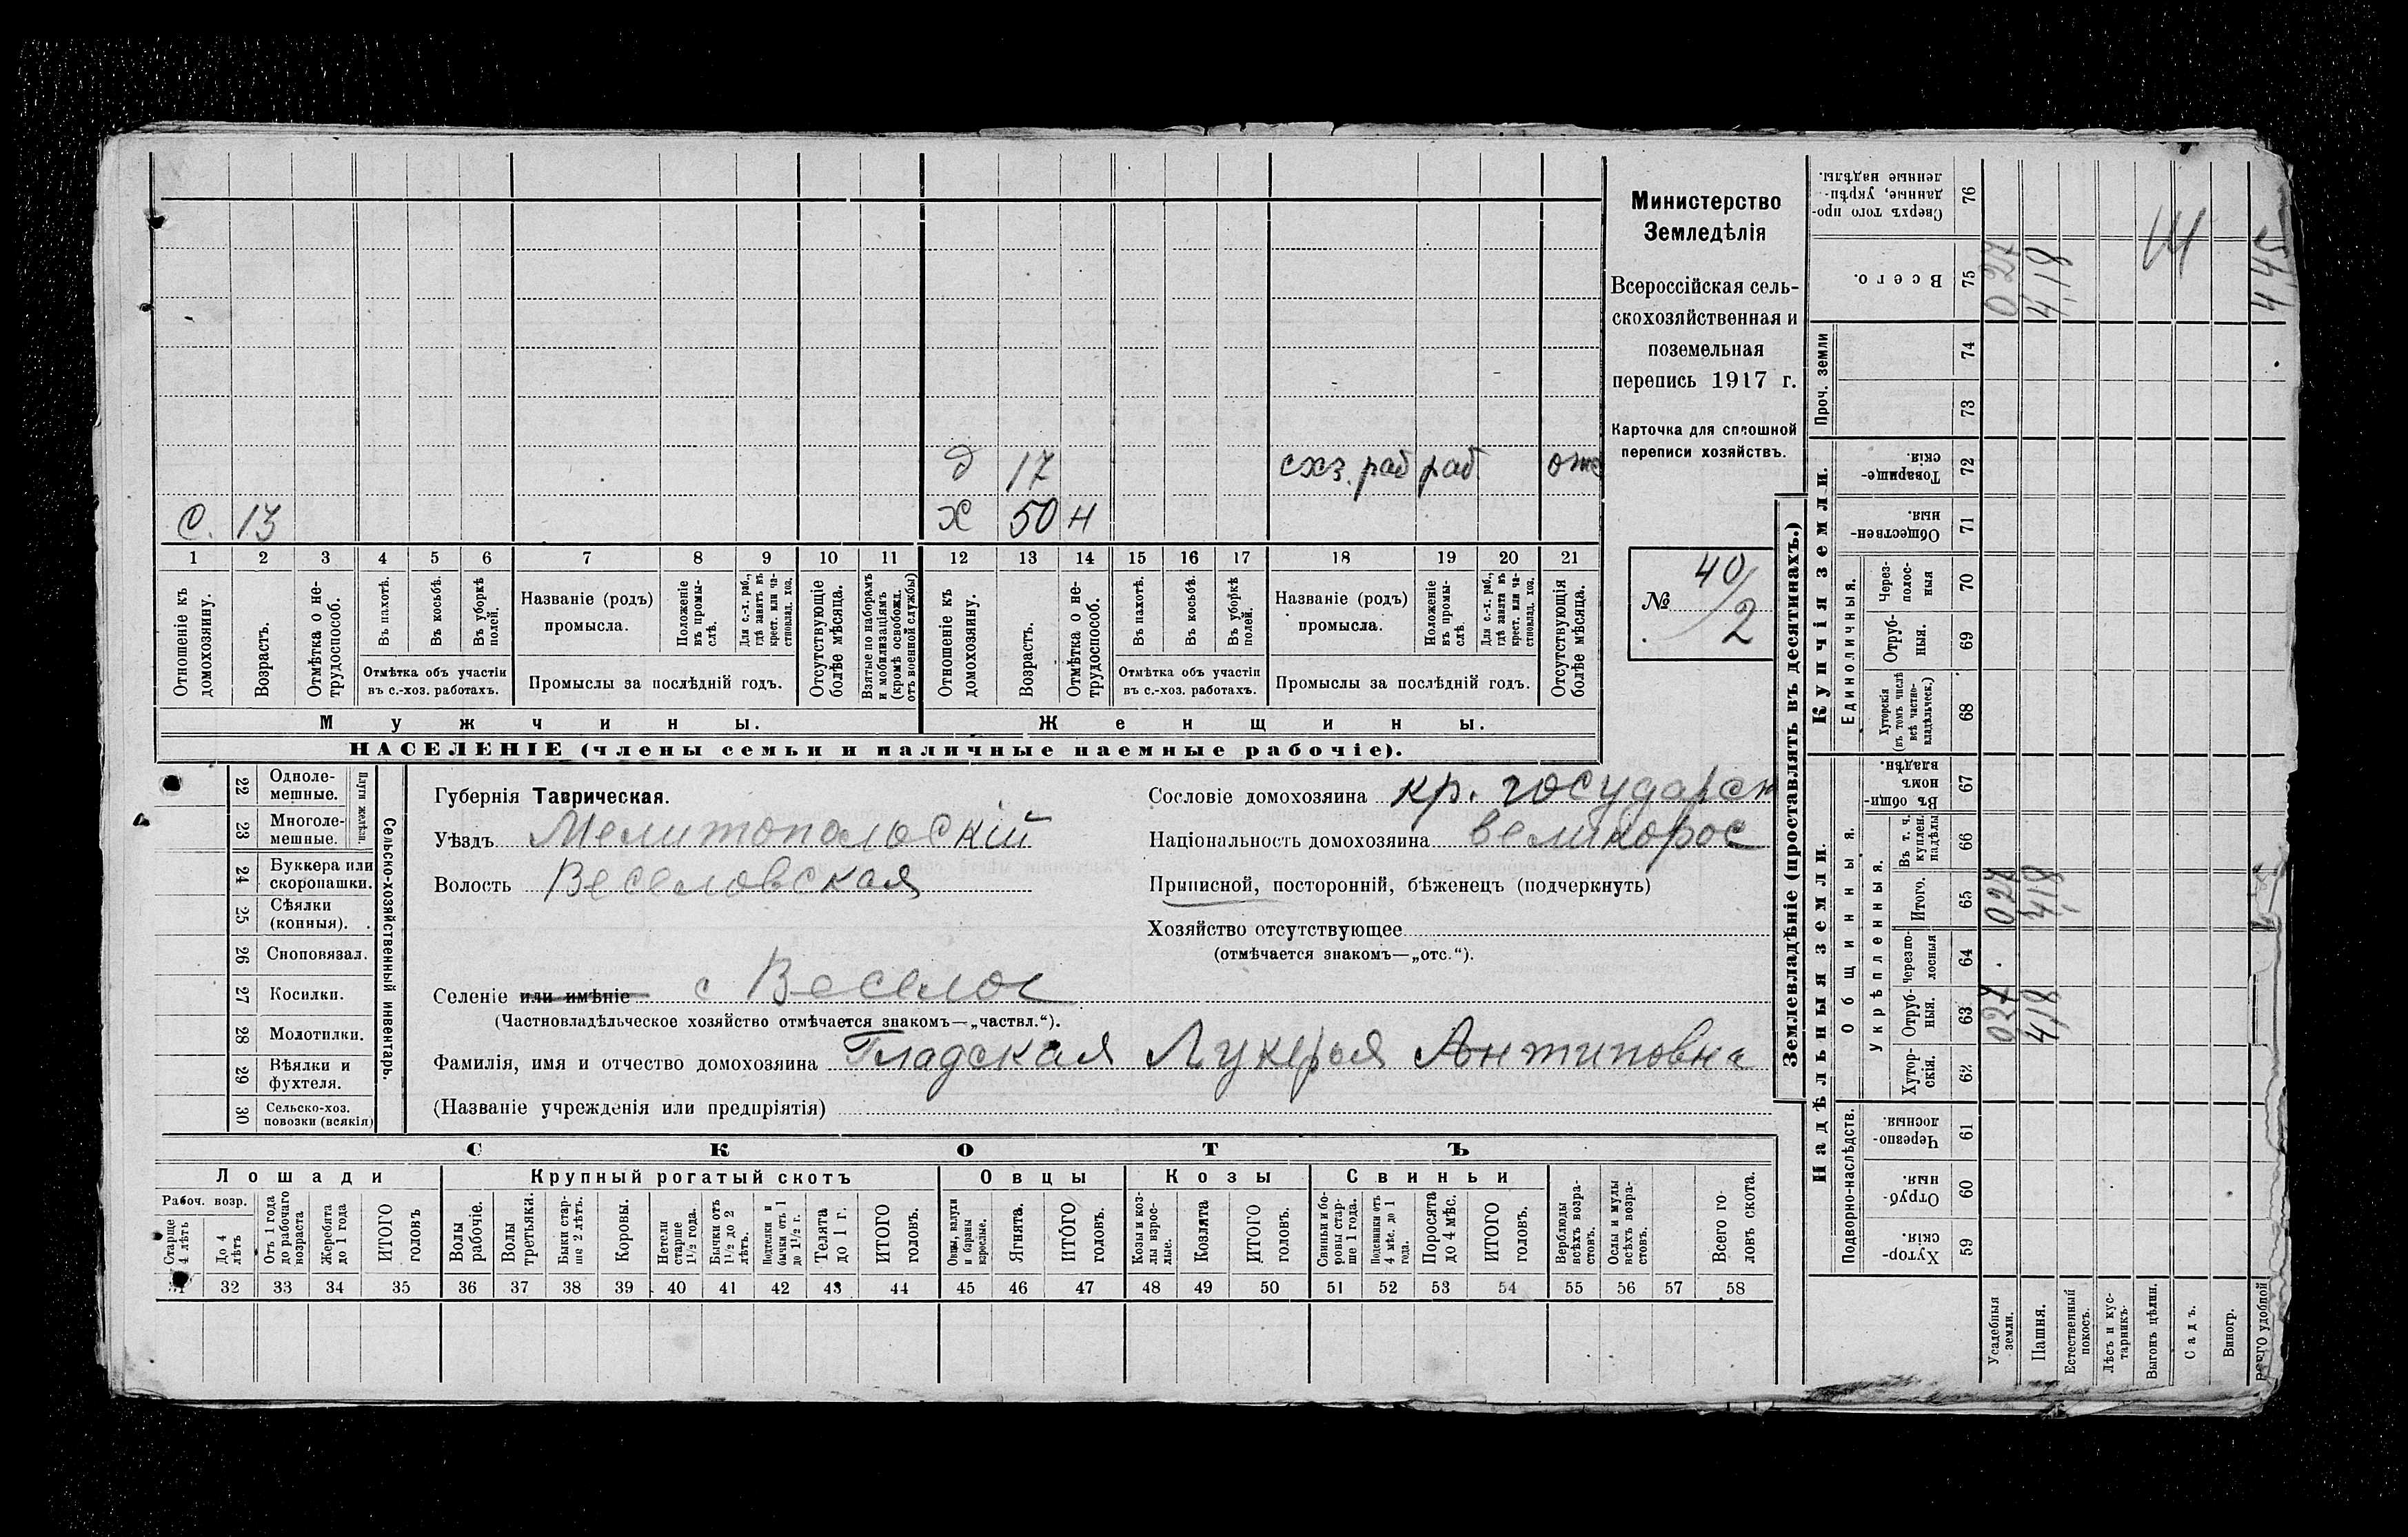 д 17 схз. раб раб.
С. 13 х 50 н
1 2 3 4 5 6 7 8 9 10 11 12 13 14 15 16 17 18 19 20 21
Отношеніе къ домохозяину.
Возрастъ.
Отмѣтка о не-трудоспособ.
Въ пахотѣ.
Въ косьбѣ.
Въ уборкѣ полей.
Отмѣтка объ участіи
въ с.-хоз. работахъ.
Названіе (родъ)
промысла.
Положеніе въ промы-слѣ.
Для с.-х. раб., гдѣ занятъ въ крест. или ча-стновлад. хоз.
Промыслы за послѣдній годъ.
Отсутствующіе болѣе мѣсяца.
Взятые по наборамъ и мобилизаціямъ (кромѣ освобожд. отъ военной службы)
Отношеніе къ домохозяину.
Возрастъ.
Отмѣтка о не-трудоспособ.
Въ пахотѣ.
Въ косьбѣ.
Въ уборкѣ полей.
Отмѣтка объ участіи
въ с.-хоз. работахъ.
Названіе (родъ)
промысла.
Положеніе въ промы-слѣ.
Для с.-х. раб., гдѣ занята въ крест. или ча-стновлад. хоз.
Промыслы за послѣдній годъ.
Отсутствующія болѣе мѣсяца.
Мужчины. Женщины.
НАСЕЛЕНІЕ (члены семьи и наличные наемные рабочіе).
Министерство
Земледѣлія
Всероссійская сель-
скохозяйственная и
поземельная
перепись 1917 г.
Карточка для сплошной
переписи хозяйствъ.
№ 40/2
22 Одноле-мешные.
23 Многоле-мешные.
Плуги желѣзн.
24 Буккера или скоропашки.
25 Сѣялки (конныя).
26 Сноповязал.
27 Косилки.
28 Молотилки.
29 Вѣялки и фухтеля.
30 Сельско-хоз. повозки (всякія)
Сельско-хозяйственный инвентарь.
Губернія Таврическая.
Уѣздъ Мелитопольскій
Волость Веселовская
Сословіе домохозяина кр. государств
Національность домохозяина великорос
Приписной, посторонній, бѣженецъ (подчеркнуть)
Хозяйство отсутствующее
(отмѣчается знакомъ—„отс.“).
Селеніе или имѣніе с Веселое
(Частновладѣльческое хозяйство отмѣчается знакомъ—„частвл.“).
Фамилія, имя и отчество домохозяина Гладская Лукерья Антиповна
(Названіе учрежденія или предпріятія)
СКОТЪ
Лошади Крупный рогатый скотъ Овцы Козы Свиньи
Рабоч. возр.
Старше 4 лѣтъ
До 4 лѣтъ
Отъ 1 года до рабочаго возраста
Жеребята до 1 года
ИТОГО головъ
Волы рабочіе.
Волы третьяки.
Быки стар-ше 2 лѣтъ.
Коровы.
Нетели старше 1½ года.
Бычки отъ 1½ до 2 лѣтъ.
Подтелки и бычки отъ 1 до 1½ г.
Телята до 1 г.
ИТОГО головъ.
Овцы, валухи и бараны взрослые.
Ягнята.
ИТОГО головъ.
Козы и коз-лы взрос-лые.
Козлята
ИТОГО головъ.
Свиньи и бо-ровы стар-ше 1 года.
Подсвинки отъ 4 мѣс. до 1 года.
Поросята до 4 мѣс.
ИТОГО головъ.
Верблюды всѣхъ возра-стовъ.
Ослы и мулы всѣхъ возра-стовъ.
Всего го-ловъ скота.
31 32 33 34 35 36 37 38 39 40 41 42 43 44 45 46 47 48 49 50 51 52 53 54 55 56 57 58
Землевладѣніе (проставлять въ десятинахъ.)
Надѣльныя земли. Купчія земли.
Подворно-наслѣдств.
Общинныя.
Укрѣпленныя.
Единоличныя.
Проч. земли
Хутор-скія. 59
Отруб-ныя. 60
Черезпо-лосныя. 61
Хутор-скія. 62
Отруб-ныя. 63
Черезпо-лосныя 64
Итого. 65
Въ т. ч. куплен. надѣлы 66
Въ общин-номъ владѣн. 67
Хуторскія (въ томъ числѣ всѣ частно-владѣльческ.) 68
Отруб-ныя. 69
Через-полос-ныя 70
Обществен-ныя. 71
Товарище-скія. 72
73
74
Всего. 75
Сверхъ того про-данные, укрѣп-ленные надѣлы. 76
Усадебныя земли. 027 027 027
Пашня. 418 418 4,18
Естественный покосъ.
Лѣсъ и кус-тарникъ.
Выгонъ цѣлин.
Садъ.
Виногр.
Всего удобной 445